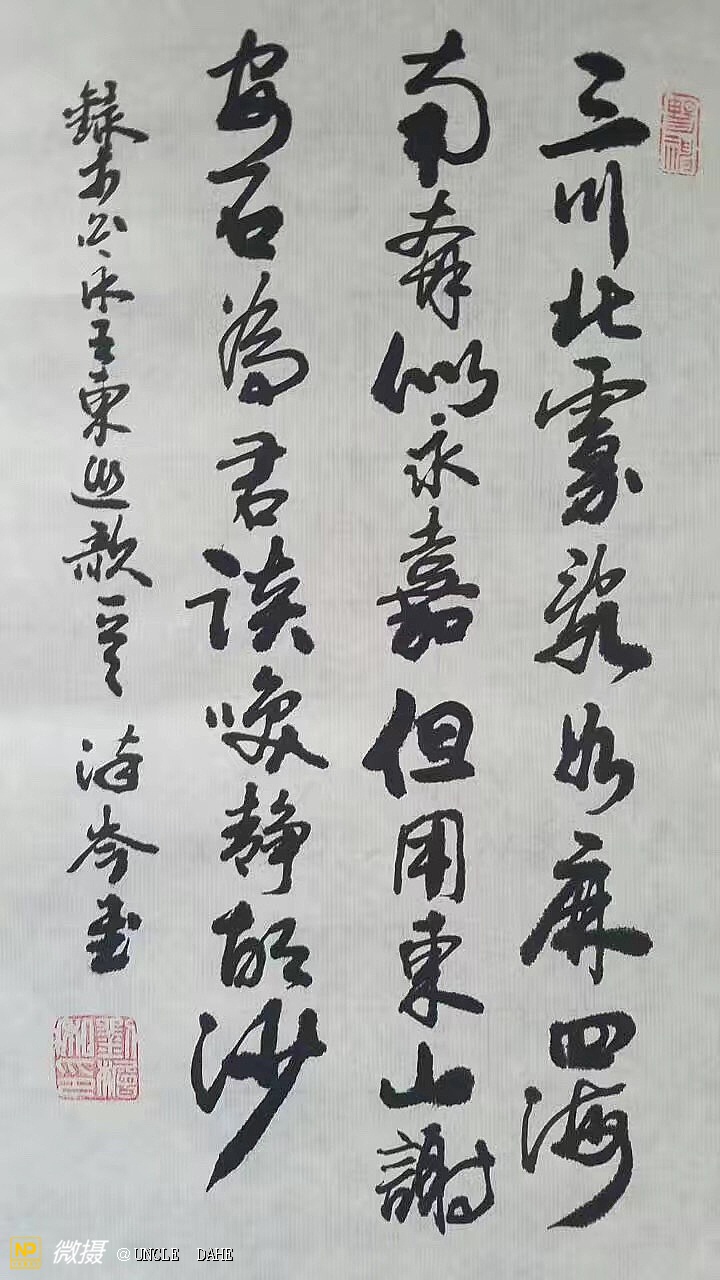 三川北虜亂如麻四海
南奔似永嘉但用東山謝
安石為君談咲靜胡沙
錄李白永王東巡歌一首 岑書
NP 微摄 @UNCLE DAHE